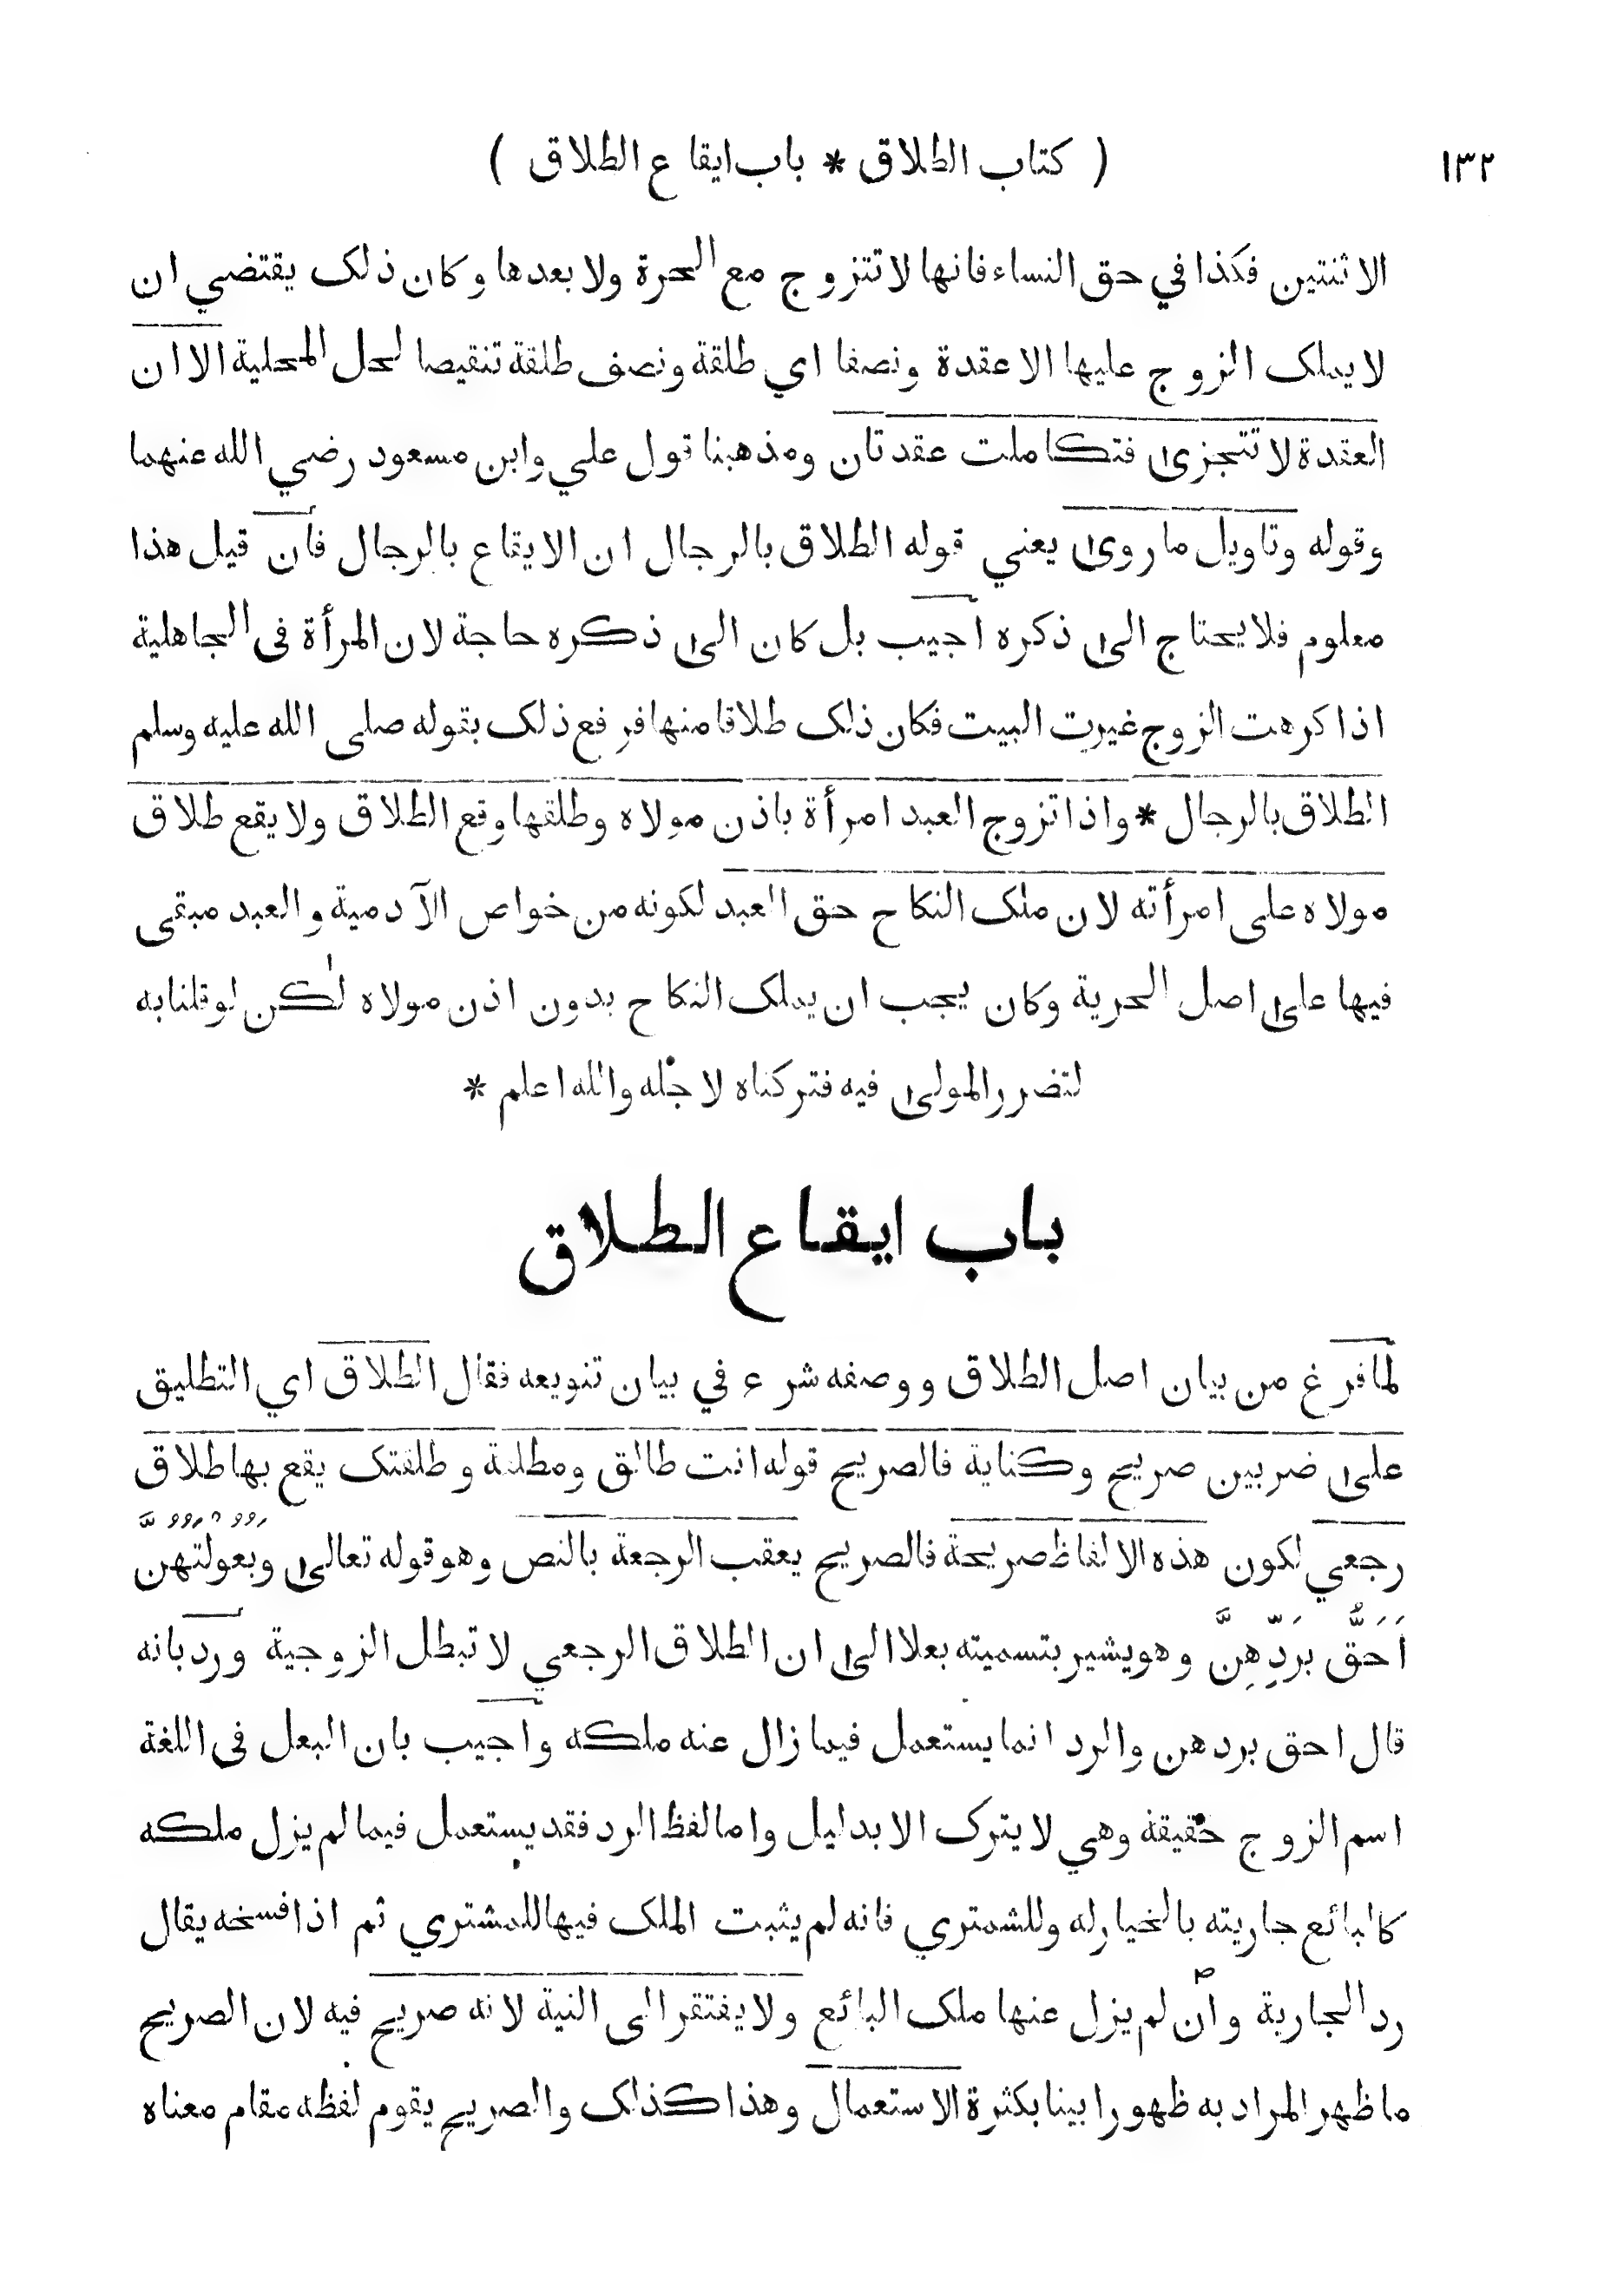 ١٣٢
( كتاب الطلاق * باب ايقاع الطلاق )
الاثنتين فكذا في حق النساء فانها لا تتزوج مع الحرة ولا بعدها وكان ذلك يقتضي ان
لا يملك الزوج عليها الا عقدة ونصفا اي طلقة ونصف طلقة تنقيصا لحل المحلية الا ان
العقدة لا تتجزى فتكاملت عقدتان ومذهبنا قول علي وابن مسعود رضي الله عنهما
وقوله وتاويل ما روى يعني قوله الطلاق بالرجال ان الايقاع بالرجال فان قيل هذا
معلوم فلا يحتاج الى ذكره اجيب بل كان الى ذكره حاجة لان المرأة فى الجاهلية
اذا كرهت الزوج غيرت البيت فكان ذلك طلاقا منها فرفع ذلك بقوله صلى الله عليه وسلم
الطلاق بالرجال * واذا تزوج العبد امرأة باذن مولاه وطلقها وقع الطلاق ولا يقع طلاق
مولاه على امرأته لان ملك النكاح حق العبد لكونه من خواص الآدمية والعبد مبقى
فيها على اصل الحرية وكان يجب ان يملك النكاح بدون اذن مولاه لكن لو قلنا به
لتضرر المولى فيه فتركناه لاجله والله اعلم *
باب ايقاع الطلاق
لما فرغ من بيان اصل الطلاق ووصفه شرع في بيان تنويعه فقال الطلاق اي التطليق
على ضربين صريح وكناية فالصريح قوله انت طالق ومطلقة وطلقتك يقع بها طلاق
رجعي لكون هذه الالفاظ صريحة فالصريح يعقب الرجعة بالنص وهو قوله تعالى وبعولتهن
اَحَقُّ بِرَدِّهِنَّ وهو يشير بتسميته بعلا الى ان الطلاق الرجعي لا تبطل الزوجية ورد بانه
قال احق بردهن والرد انما يستعمل فيما زال عنه ملكه واجيب بان البعل فى اللغة
اسم الزوج حقيقة وهي لا يترك الا بدليل واما لفظ الرد فقد يستعمل فيما لم يزل ملكه
كالبائع جاريته بالخيار له وللشمتري فانه لم يثبت الملك فيها للمشتري ثم اذا فسخه يقال
رد الجارية وان لم يزل عنها ملك البائع ولا يفتقر الى النية لانه صريح فيه لان الصريح
ما ظهر المراد به ظهورا بينا بكثرة الاستعمال وهذا كذلك والصريح يقوم لفظه مقام معناه